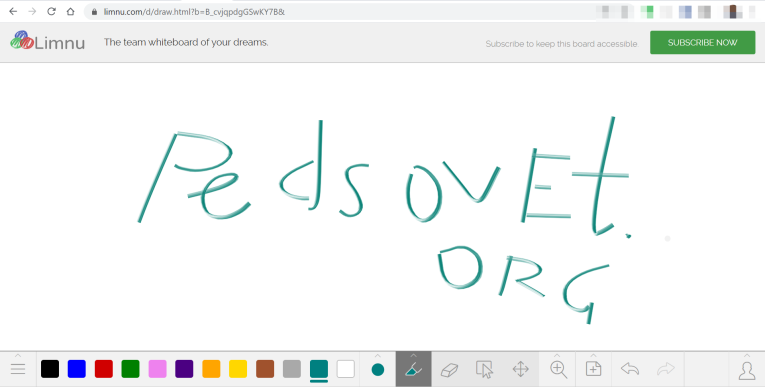 limnu.com/d/draw.html?b=B_cvjqpdgGSwKY7B&
Limnu The team whiteboard of your dreams. Subscribe to keep this board accessible. SUBSCRIBE NOW
PedsovEt.
ORG